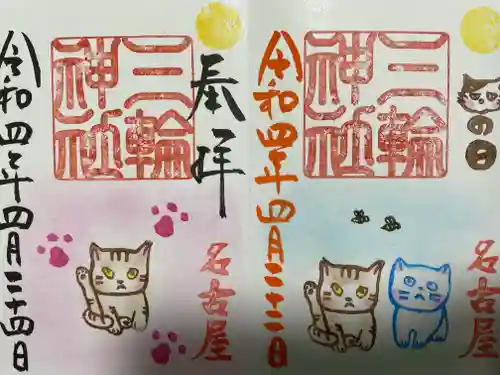 の日
名古屋
三輪
神社
令和四年四月二十二日
奉拝
名古屋
三輪
神社
令和四年四月二十四日